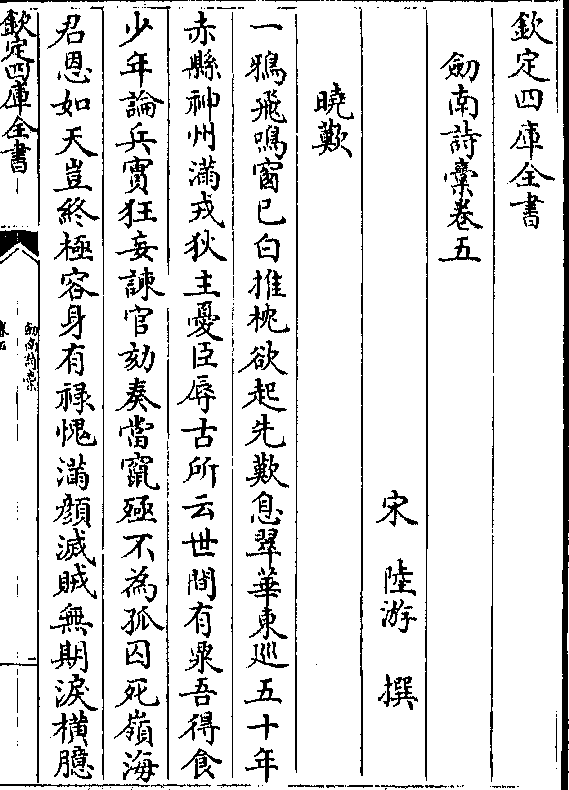 欽定四庫全書
劒南詩稾卷五
宋 陸游 撰
曉歎
一鴉飛鳴窗已白推枕欲起先歎息翠華東巡五十年
赤縣神州滿戎狄主憂臣辱古所云世間有粟吾得食
少年論兵實狂妄諫官劾奏當竄殛不為孤囚死嶺海
君恩如天豈終極容身有禄愧滿顔滅賊無期淚橫臆
欽定四庫全書
劒南詩稾
卷五
一